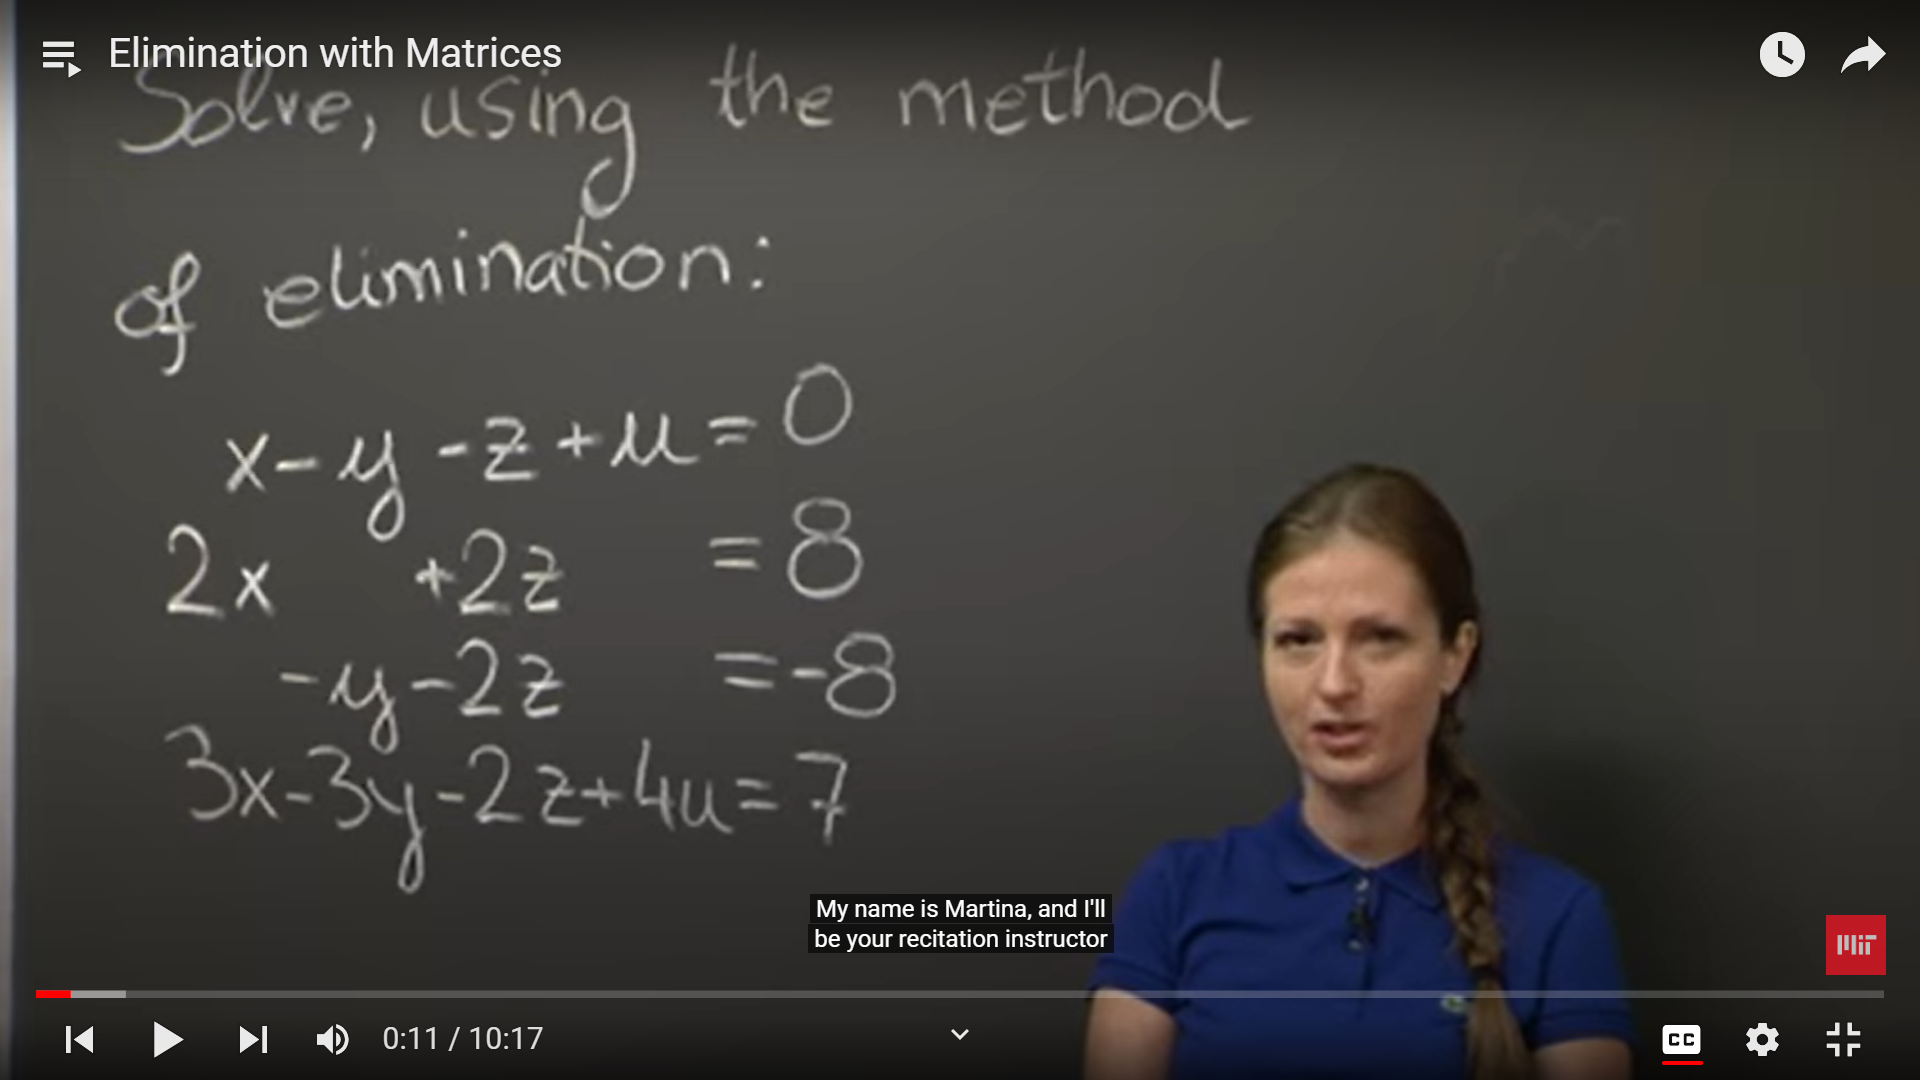 Elimination with Matrices
Solve, using the method
of elimination:
x - y - z + u = 0
2x + 2z = 8
- y - 2z = -8
3x - 3y - 2z + 4u = 7
My name is Martina, and I'll
be your recitation instructor
MIT
0:11 / 10:17
CC